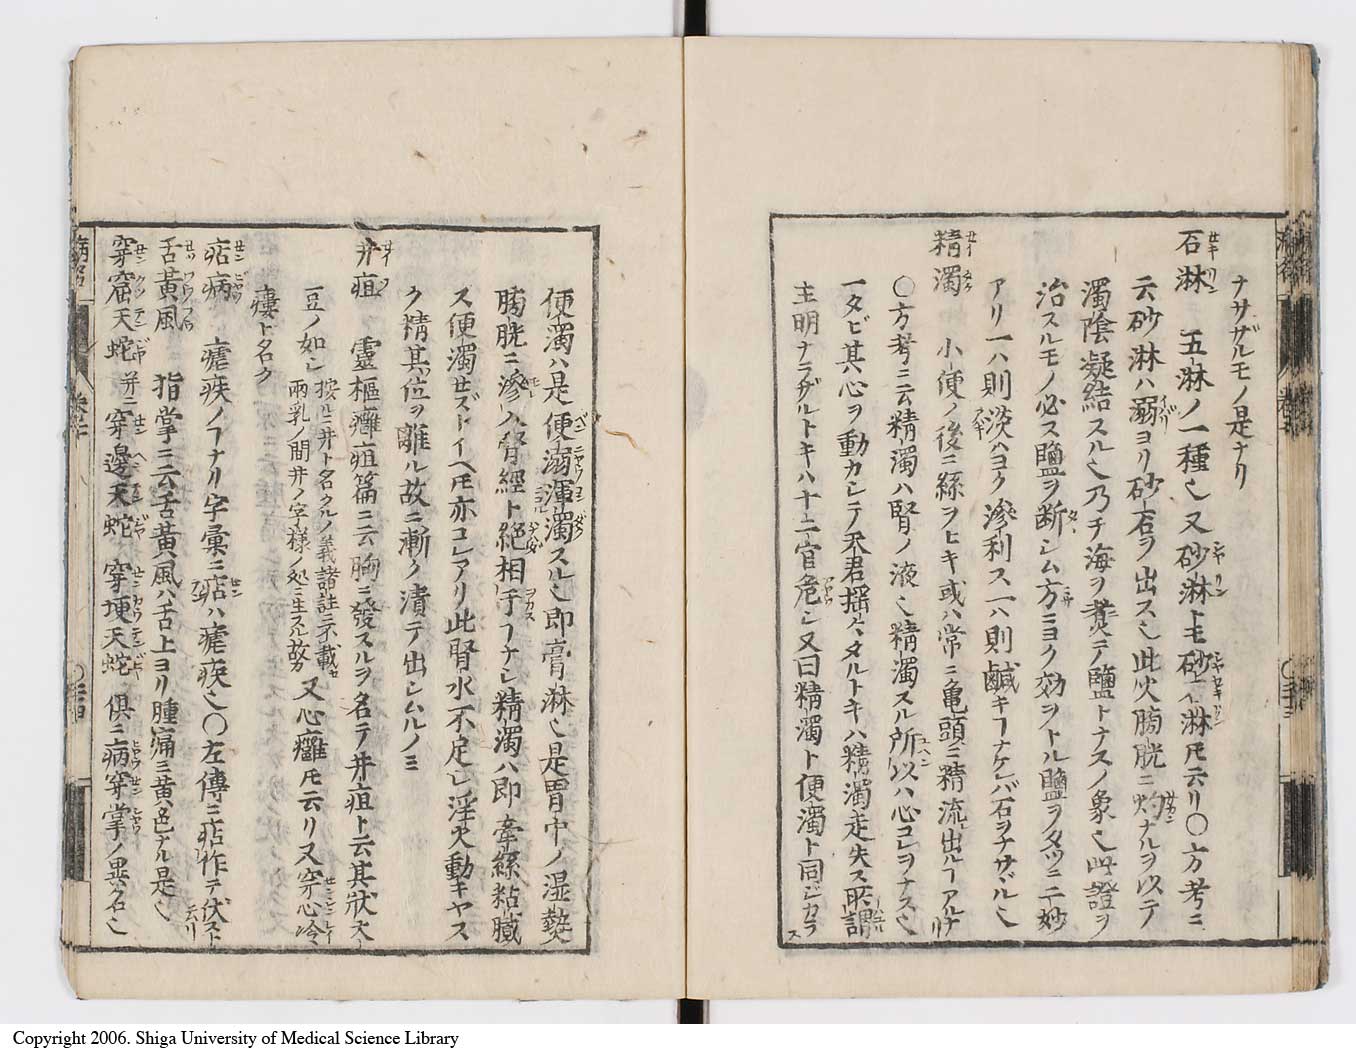 ナサザルモノ是ナリ
石淋 五淋ノ一種也又砂淋トモ砂石淋トモ云リ〇方考ニ
云砂淋ハ溺ヨリ砂石ヲ出ス也此火膀胱ニ灼ナルヲ以テ
濁陰凝結スル也乃チ海ヲ煑テ鹽トナスノ象也此證ヲ
治スルモノ必ス鹽ヲ断シム方ニヨク効ヲトル鹽ヲタツニ二妙
アリ一ハ則淡ハヨク滲利ス一ハ則鹹キヿナケレバ石ヲナサヾル也
精濁 小便ノ後ニ絲ヲヒキ或ハ常ニ亀頭ニ精流出ルヿアルナリ
〇方考ニ云精濁ハ腎ノ液也精濁スル所以ハ心コレヲナス也
一タビ其心ヲ動カシテ天君揺ハタルトキハ精濁走失ス所謂
主明ナラザルトキハ十二官危シ又曰精濁ト便濁ト同ジカラス
便濁ハ是便溺渾濁スル也即膏淋也是胃中ノ湿熱
膀胱ニ滲入腎經ト絶相干ヿナシ精濁ハ即牽絲粘膩
ス便濁セズトイヘトモ亦コレアリ此腎水不足シ淫火動キヤス
ク精其位ヲ離ル故ニ漸ク漬テ出シムルノミ
井疽 靈樞癰疽篇ニ云胸ニ發スルヲ名テ井疽ト云其狀大
豆ノ如シ 按ニ井ト名クルノ義諸註ニ不載 兩乳ノ間井ノ字様ノ処ニ生スル故カ 又心癰トモ云リ又穿心冷
瘻ト名ク
痁病 瘧疾ノヿナリ字彙ニ痁ハ瘧疾也〇左傳ニ痁作テ伏スト云リ
舌黄風 指掌ニ云舌黄風ハ舌上ヨリ腫痛ニ黄色ナル是也
穿窟天蛇 并ニ穿邊天蛇 穿埂天蛇 俱ニ病穿掌ノ異名也
病名
巻二
〇三十四
Copyright 2006. Shiga University of Medical Science Library